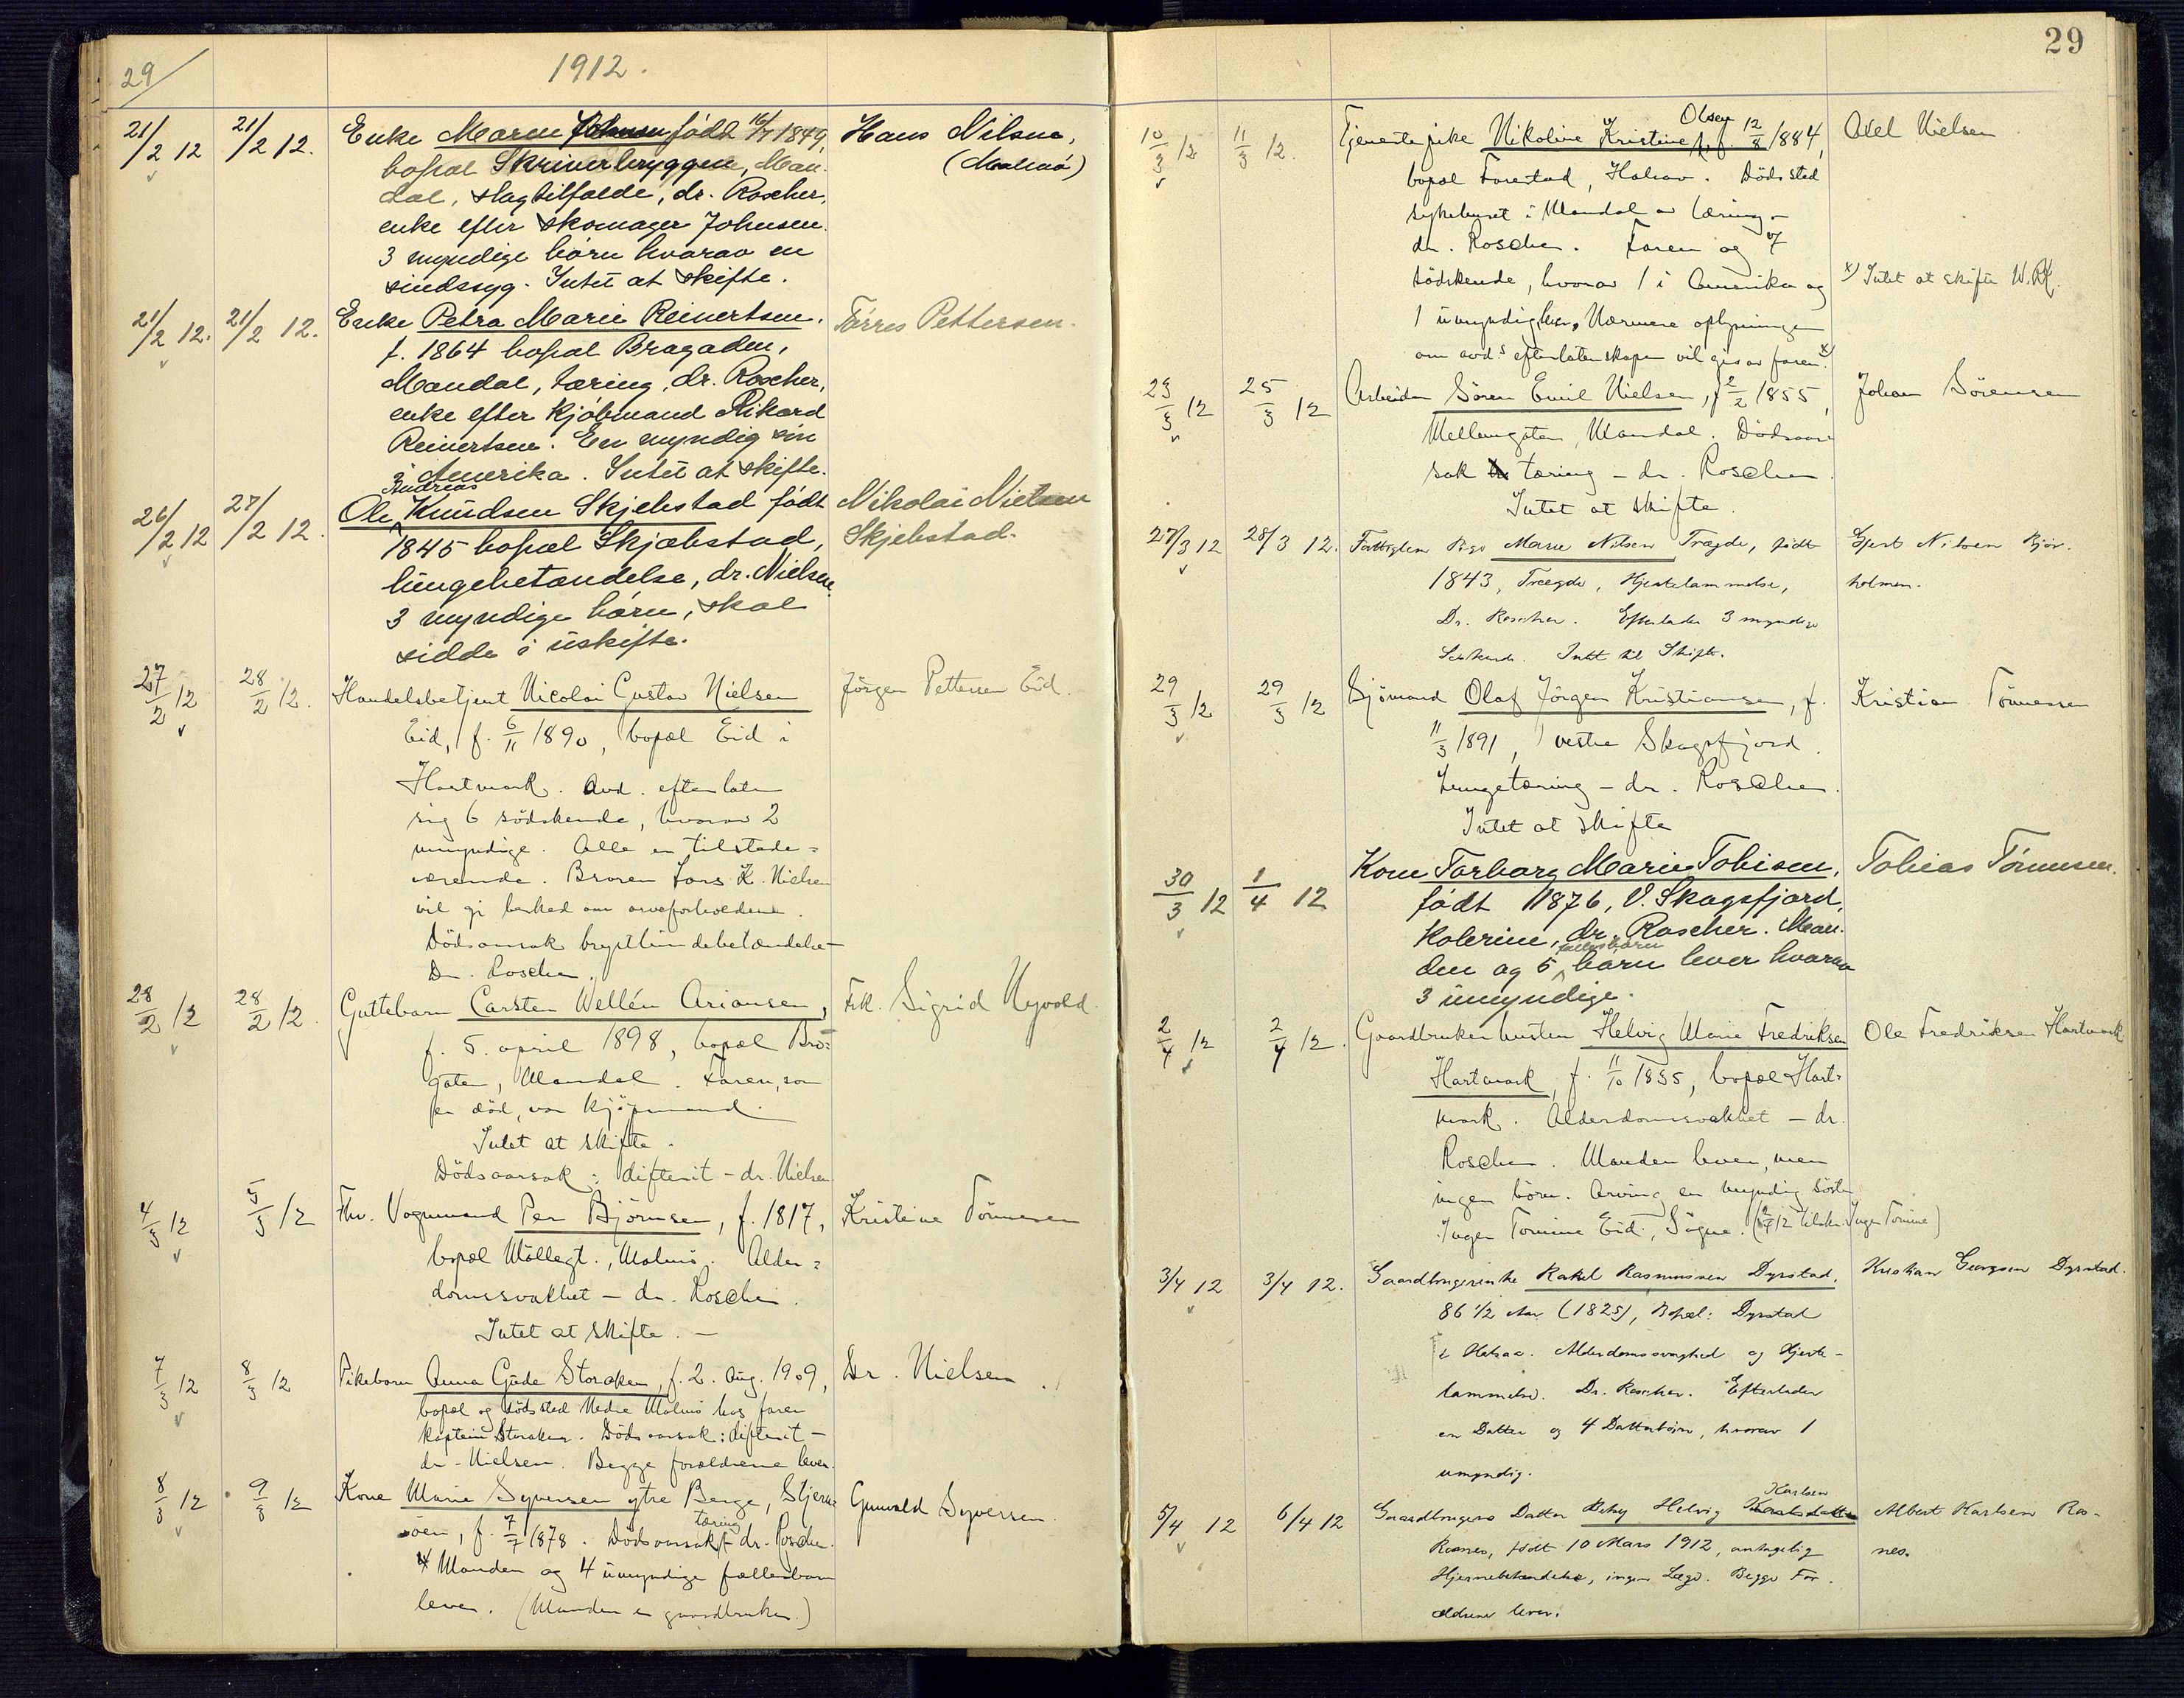 29
1912.
21/2 12 21/2 12. Enke Maren Johnsen født 16/7 1849, Hans Nilsen,
bopæl Skriverbryggen, Man- (Malmö)
dal, slagtilfælde, dr. Roscher,
enke efter skomager Johnsen.
3 myndige börn hvorav en
sindssyg. Intet at skifte.
21/2 12. 21/2 12. Enke Petra Marie Reinertsen, Törres Pettersen.
f. 1864 bopæl Bragaden,
Mandal, tæring, dr. Roscher,
enke efter kjöbmand Rikard
Reinertsen. En myndig sön
i Amerika. Intet at skifte.
Andreas
26/2 12 27/2 12. Ole Knudsen Skjebstad født Nikolai Nielsen
1845 bopæl Skjæbstad, Skjebstad.
lungebetændelse, dr. Nielsen.
3 myndige börn, skal
sidde i uskifte.
27/2 12 28/2 12. Handelsbetjent Nicolai Gustav Nielsen Jörgen Pettersen Eid.
Eid, f. 6/11 1890, bopæl Eid i
Hartmark. Avd. efterlater
sig 6 södskende, hvorav 2
umyndige. Alle er tilstede=
værende. Broren Lars K. Nielsen
vil gi besked om arveforholdene.
Dödsaarsak brysthindebetændelse
Dr. Roscher.
28/2 12 28/2 12. Guttebarn Carsten Wellén Ariansen, Frk. Sigrid Nyvold.
f. 5. april 1898, bopæl Bro=
gaten, Mandal. Faren, som
er död, var kjöpmand.
Intet at skifte.
Dödsaarsak: difterit - dr. Nielsen
4/3 12 5/3 12 Fhv. Vognmand Per Björnsen, f. 1817, Kristine Tönnesen
bopæl Möllegt., Malmö. Alder=
domssvakhet - dr. Roscher.
Intet at skifte. -
7/3 12 8/3 12 Pikebarn Anna Gude Storaker, f. 2. Aug. 1909, Dr. Nielsen
bopæl og dödssted Nedre Malmö hos faren
kaptein Storaker. Dödsaarsak: difterit -
dr. Nielsen. Begge forældrene lever.
8/3 12 9/3 12 Kone Marie Syversen ytre Berge, Stjern Gunvald Syversen.
öen, f. 7/7 1878. Dödsaarsak tæring - dr. Roscher.
Manden og 4 umyndige fællesbarn
lever. (Manden er gaardbruker.)
29
10/3 12 11/3 12. Tjenestepike Nikoline Kristine Olsen f. 12/8 1884, Axel Nielsen
bopæl Forestad, Halsaa. Dödssted
sykehuset i Mandal av tæring -
dr. Roscher. Faren og 7
södskende, hvorav 1 i Amerika og x) Intet at skifte W.RK.
1 umyndig lever. Nærmere oplysninger
om avd.s efterlatenskaper vil gis av faren. x)
23/3 12 25/3 12 Arbeider Sören Emil Nielsen, f 2/2 1855, Johan Sörensen
Mellemgaten, Mandal. Dödsaar
sak tæring - dr. Roscher.
Intet at skifte.
27/3 12 28/3 12. Fattiglem Pige Marie Nilsen Trægde, født Gjert Nilsen Bjør-
1843, Trægde, Hjertelammelse, holmen.
Dr. Roscher. Efterlader 3 myndige
Søskende. Intet til Skifte.
29/3 12 29/3 12 Sjömand Olaf Jörgen Kristiansen, f. Kristian Tönnessen
11/3 1891, vestre Skogsfjord.
Lungetæring - dr. Roscher.
Intet at skifte
30/3 12 1/4 12 Kone Torborg Marie Tobisen, Tobias Tönnesen.
født 1876, V. Skogsfjord,
kolerine, dr. Roscher. Man-
den og 5 fællesbörn börn lever hvorav
3 umyndige.
2/4 12 2/4 12. Gaardbruker hustru Helvig Marie Fredriksen Ole Fredriksen Hartmark
Hartmark, f. 11/10 1835, bopæl Hart=
mark. Alderdomssvakhet - dr.
Roscher. Manden lever, men
ingen börn. Arving en myndig söster
Inger Tomine Eid, Sögne. (2/4 12 tilskr. Inger Tomine)
3/4 12 3/4 12. Gaardbrugerenke Rakel Rasmussen Dyrstad, Kristian Georgsen Dyrstad.
86 1/2 Aar (1825), Bopæl: Dyrstad
i Halsaa. Alderdomssvaghed og Hjerte-
lammelse. Dr. Roscher. Efterlader
en Datter og 4 Datterbørn, hvorav 1
umyndig.
5/4 12 6/4 12 Gaardbrugers Datter Betsy Helvig Karlsen Karlsdatter Albert Karlsen Ros-
Rosnes, født 10 Mars 1912, antagelig nes.
Hjernebetændelse, ingen Læge. Begge For-
ældrene lever.